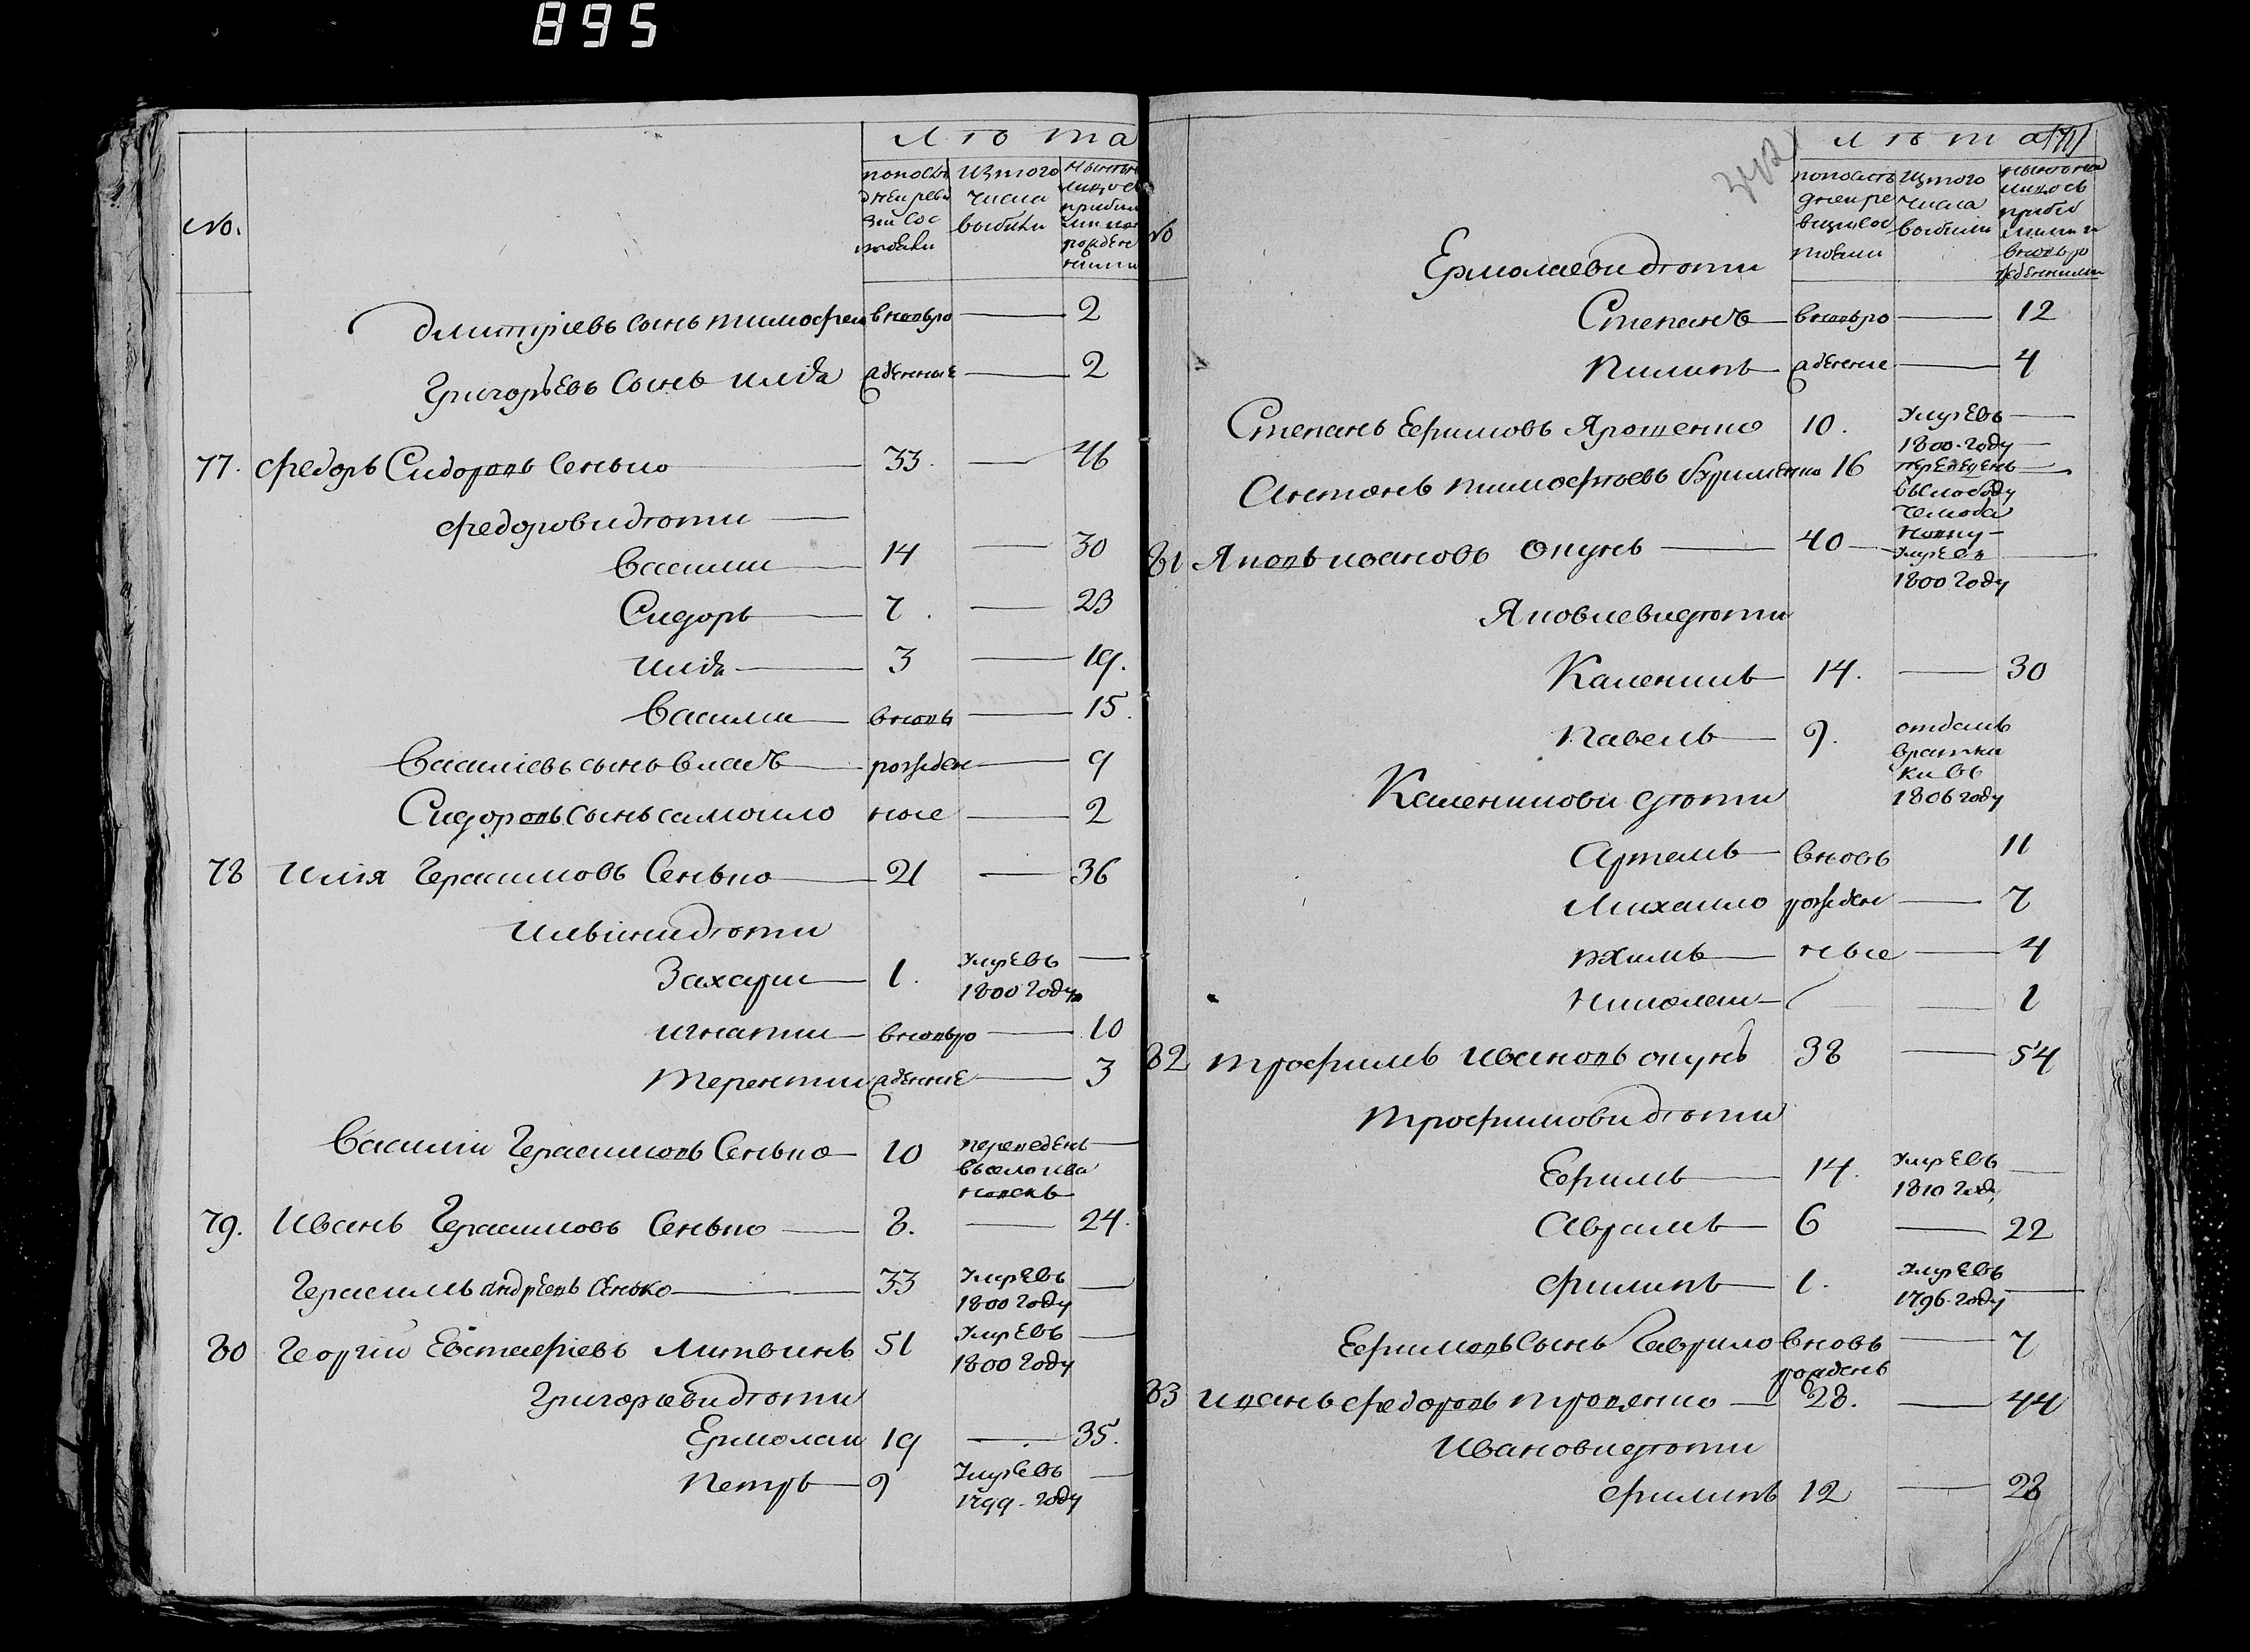 895
Лѣта
№.
попослѣ
дней реви
зіи сос
тояли
изтого
числа
выбыли
нынѣ на
лицо съ
прибыл
ими и
рожден
ными
Дмитріевъ сынъ тимофей вновьро — 2
Григорьевъ сынъ илья жденные — 2
77. Федоръ Сидоровъ Сенько — 33. — 46
Федорови дѣти —
Василий — 14 — 30
Сидоръ — 7. — 23
илья — 3 — 19.
Василий — вновь — 15.
Василіевъ сынъ власъ — рожден — 9
Сидоровъ сынъ самойло ные — 2
78 Илія Герасимовъ Сенько — 21 — 36
Ильини дѣти
Захарий — 1. Умре въ —
1800 году
игнатий — вновьро — 10
терентий жденные — 3
Василій Герасимовъ Сенько — 10 переведенъ —
въсело ива
новскъ
79. Иванъ Герасимовъ Сенько — 8. — 24.
Герасимъ андреевъ Сенько — 33 Умре въ —
1800 году
80 Георгій Евстафіевъ Литвинъ 51 Умре въ —
1800 году
Григорьеви дѣти
Ермолай 19 — 35.
Петръ — 9 Умре въ —
1799. году
Лѣта
№
попослѣ
дней ре
визіи сос
тояли
изтого
числа
выбыли
нынѣ на
лицо съ
прибы
лыми и
вновь ро
жденными
Ермолаеви дѣти
Степанъ — вновьро — 12
Пилипъ — жденные — 4
Степанъ Ефимовъ Ярошенко 10. Умре въ —
1800. году —
Антонъ тимофѣевъ 16 переведенъ —
въслободу
81 Яковъ ивановъ Опунъ — 40 — Умре в —
1800 году
Яковлеви дѣти
Каленикъ — 14. — 30
Павелъ — 9. отданъ
в ратни
ки въ
1806 году
Каленикови дѣти
Артемъ — вновь 11
Михайло рожден — 7
якимъ — ные — 4
николай — — 1
82 трофимъ Ивановъ опунъ 38 — 54
трофимови дѣти
Ефимъ — 14. Умре въ —
1810 году
Аврамъ — 6 — 22
Филипъ — 1. Умре въ —
1796. году
Ефимовъ сынъ Гаврило вновь — 7
рожденъ
83 Иванъ Федоровъ троценко — 28. — 44
Иванови дѣти
Филипъ 12 — 28